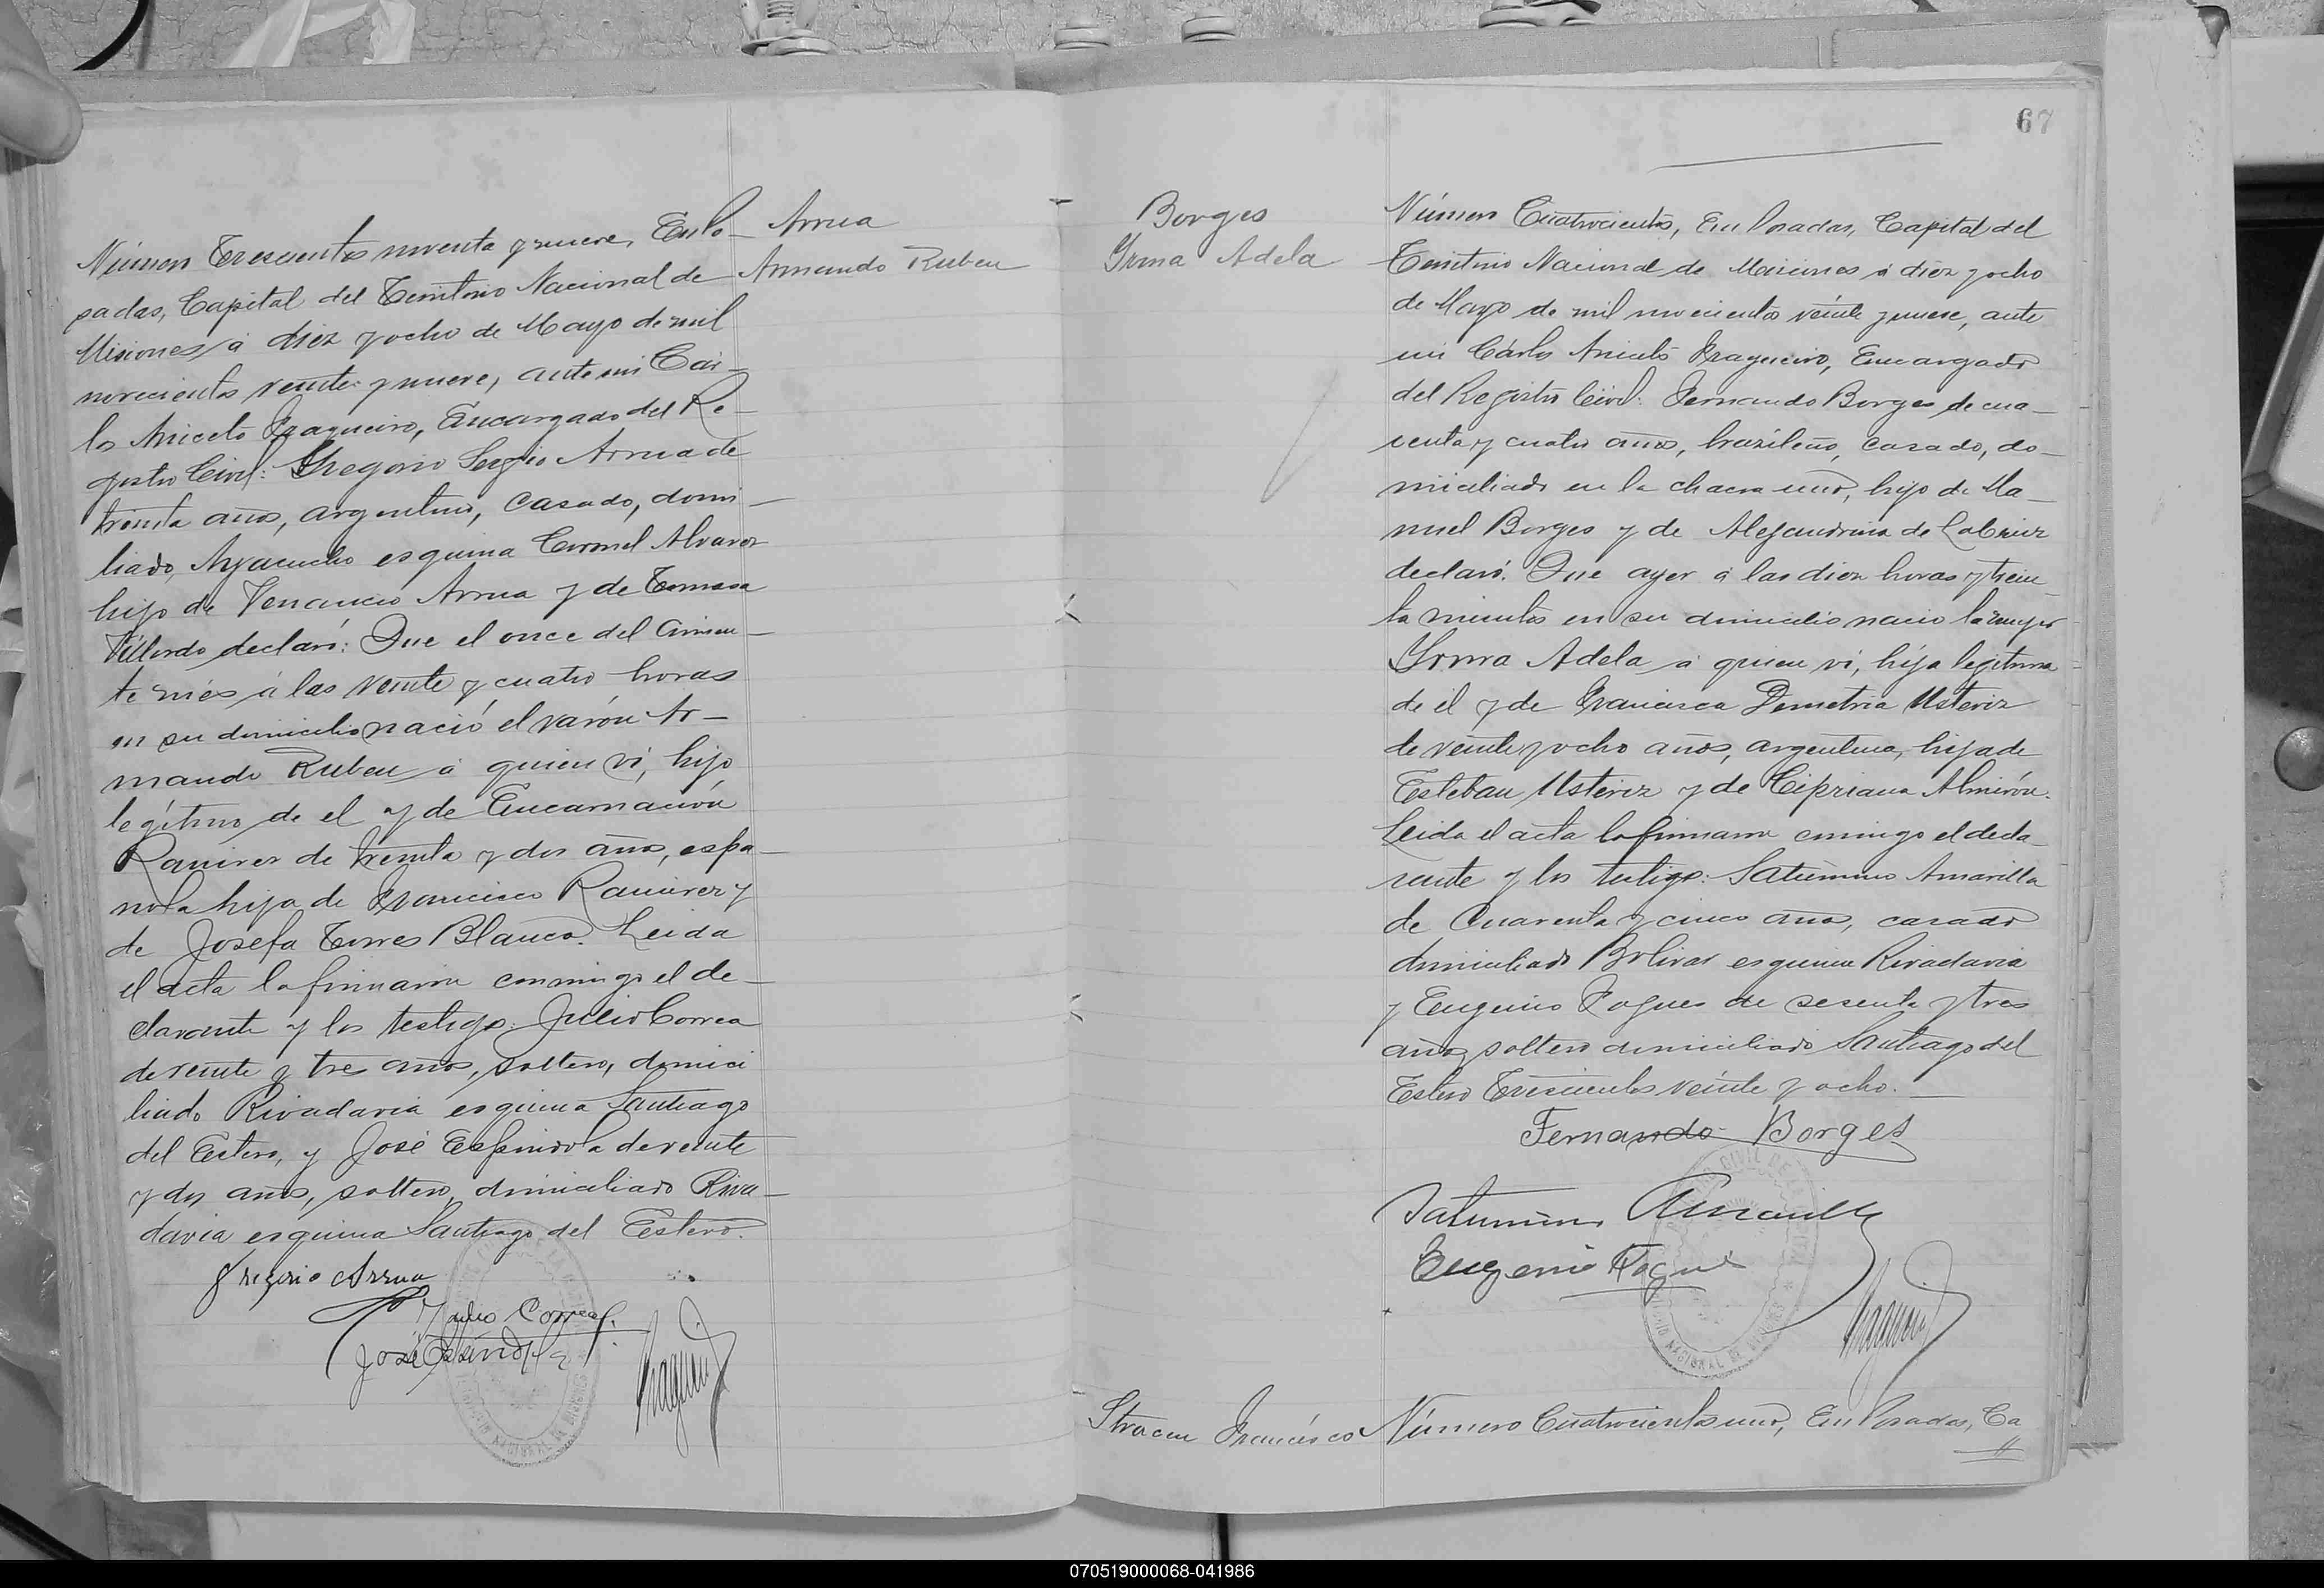 Número Trescientos noventa y nueve, En Po-
sadas, Capital del Territorio Nacional de
Misiones á diez y ocho de Mayo de mil
novecientos veinte y nueve, ante mi Cár-
los Aniceto Fragueiro, Encargado del Re-
gistro Civil: Gregorio Sergio Arrua de
treinta años, argentino, casado, domi-
liado, Ayacucho esquina Coronel Alvarez
hijo de Venancio Arrua y de Tomasa
Villordo declaró: Que el once del corrien-
te més á las veinte y cuatro horas
en su domicilio nació el varón Ar-
mando Ruben á quien vi, hijo
legítimo de el y de Encarnación
Ramirez de treinta y dos años, espa-
nola hija de Francisco Ramirez y
de Josefa Torres Blanco. Leida
el acta la firmaron conmigo el de-
clarante y los testigos: Julio Correa
de veinte y tres años, soltero, domici
liado Rivadavia esquina Santiago
del Estero, y José Espindola de veinte
y dos años, soltero, domiciliado Riva-
davia esquina Santiago del Estero.
Gregorio Arrua
Julio Correa
José Espindola
Fragueiro
Arrua
Armando Ruben
67
Borges
Yrma Adela
Número Cuatrocientos, En Posadas, Capital del
Territorio Nacional de Misiones á diez y ocho
de Mayo de mil novecientos veinte y nueve, ante
mi Cárlos Aniceto Fragueiro, Encargado
del Registro Civil: Fernando Borges de cua-
renta y cuatro años, brazileño, casado, do-
miciliado en la chacra uno, hijo de Ma-
nuel Borges y de Alejandrina de
declaró: Que ayer á las diez horas y trein-
ta minutos en su domicilio nació la mujer
Yrma Adela á quien vi, hija legítima
de él y de Francisca Demetria Usteriz
de veinte y ocho años, argentina, hija de
Esteban Usteriz y de Cipriana Almirón.
Leida el acta la firmaron conmigo el decla-
rante y los testigos: Saturnino Amarilla
de Cuarenta y cinco años, casado
domiciliado Bolivar esquina Rivadavia
y Eugenio Fogues de sesenta y tres
años soltero domiciliado Santiago del
Estero Trescientos veinte y ocho.
Fernando Borges
Saturnino Amarilla
Eugenio
Fragueiro
Francisco
Número Cuatrocientos uno, En Posadas, Ca
070519000068-041986